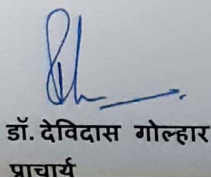 डॉ. देविदास गोल्हार
प्राचार्य